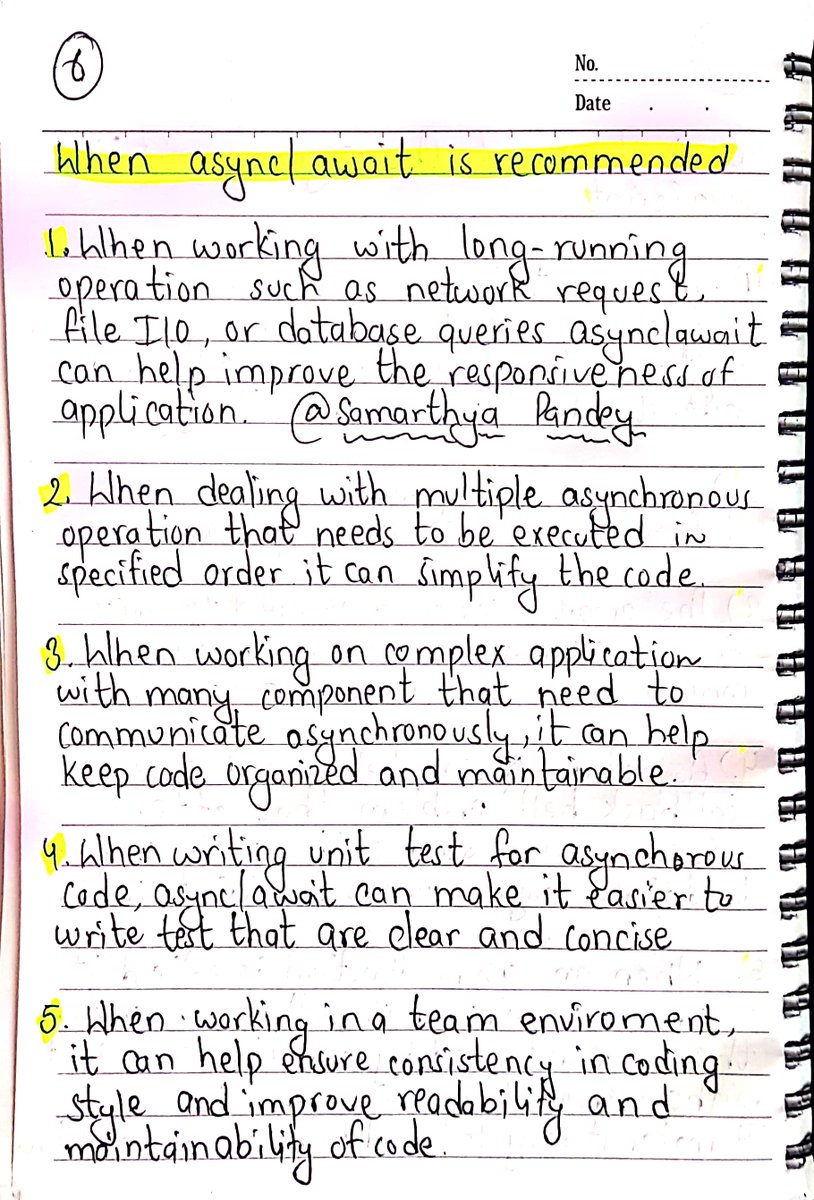 6
No.
Date
When async/await is recommended
1. When working with long-running
operation such as network request,
file I/O, or database queries async/await
can help improve the responsiveness of
application. @Samarthya Pandey
2. When dealing with multiple asynchronous
operation that needs to be executed in
specified order it can simplify the code.
3. When working on complex application
with many component that need to
communicate asynchronously, it can help
keep code organized and maintainable.
4. When writing unit test for asynchorous
code, async/await can make it easier to
write test that are clear and concise
5. When working in a team enviroment,
it can help ensure consistency in coding
style and improve readability and
maintainability of code.